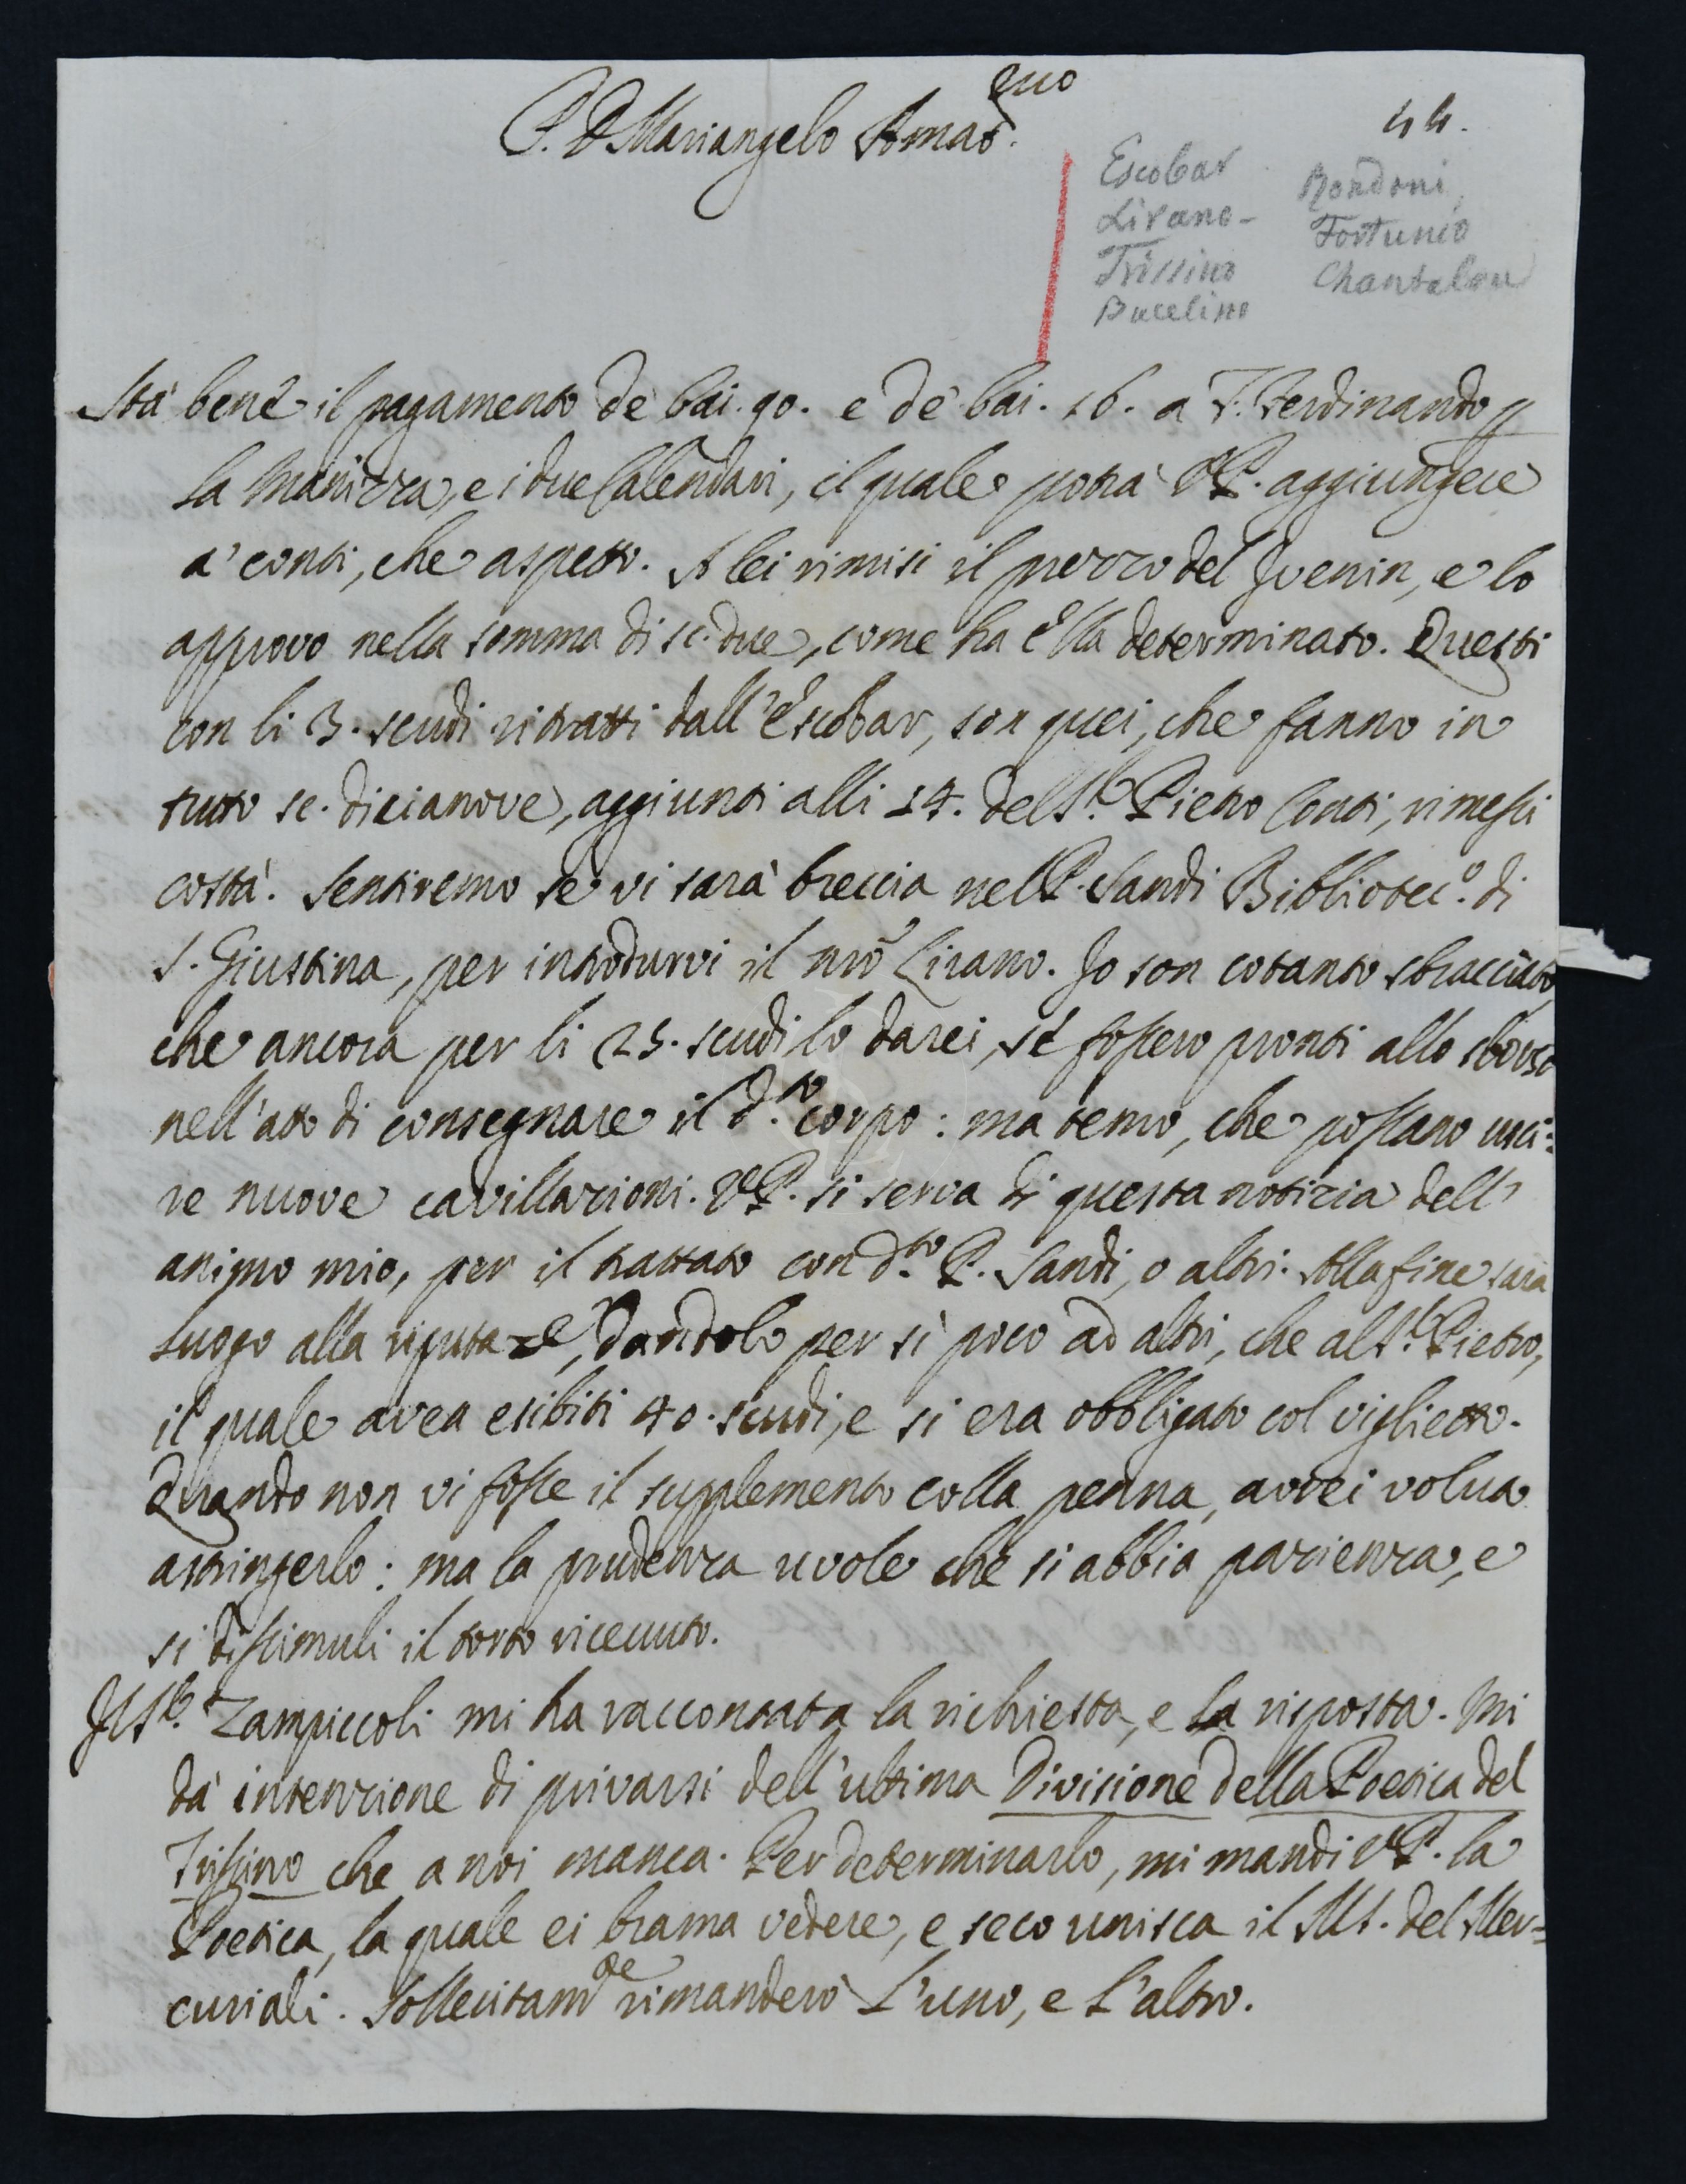 P. D. Mariangelo Amat.mo
44.
Escobar
Lirano -
Trissino
Bucelino
Bondoni
Fortunio
Chantelou
Stà bene il pagamento de' bai. 90. e de' bai. 16. a F. Ferdinando p
la Manizza, e i due Calendari, il quale potrà V.P. aggiungere
a' conti, che aspetto. A lei rimisi il prezzo del Juenin, e lo
approvo nella somma di sc. due, come ha ella determinato. Questi
con li 3. scudi ritratti dall'Escobar, son quei, che fanno in
tutto sc. dicianove, aggiunti alli 14. del S.r Pietro Conti, rimessi
costà. Sentiremo se vi sarà breccia nel P. Sandi Bibliotec.o di
S. Giustina, per introdurvi il nrõ Lirano. Io son cotanto sbracciato,
che ancora per li 25. scudi lo darei, se fossero pronti allo sborso
nell'atto di consegnare il d.to corpo: ma temo, che possano usci:
re nuove cavillazioni. V.P. si serva di questa notizia dell'
animo mio, per il trattato con d.to P. Sandi, o altri. Alla fine sarà
luogo alla riputa=e, dandolo per sì poco ad altri, che al S.r Pietro,
il quale avea esibiti 40. scudi, e si era obbligato col viglietto.
Quando non vi fosse il supplemento colla penna, avrei voluto
astringerlo: ma la prudenza vuole che si abbia pazienza, e
si dissimuli il torto ricevuto.
Il S.r Zampiccoli mi ha raccontata la richiesta, e la risposta. Mi
dà intenzione di privarsi dell'ultima Divisione della Poetica del
Trissino che a noi manca. Per determinarlo, mi mandi V.P. la
Poetica, la quale ei brama vedere, e seco unisca il MS. del Mer=
curiali. Sollecitam.te rimanderò l'uno, e l'altro.